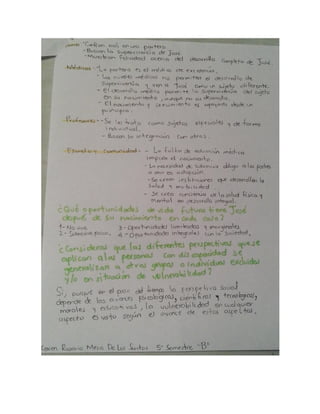 - Confían más en una partera.
- Buscan la supervivencia de José.
- Muestran felicidad acerca del desarrollo completo de José
Médicos - La partera es el médico de existencia.
- Los nuevos médicos no permiten el desarrollo de supervivencia y ven a José como un sujeto diferente.
- El desarrollo médico permite la supervivencia del sujeto
en su nacimiento, aunque no su desarrollo.
- El nacimiento y crecimiento es apoyado desde un
principio.
Profesores - Se les trata como sujetos especiales y de forma
individual.
- Buscan su integración con otros.
Escuela y comunidad - La falta de educación médica
impide el nacimiento.
- La necesidad de obliga a los padres
a dar en adopción.
- Se crean instituciones que desarrollan la
salud y motricidad
- Se crea conciencia de la salud física y
mental en desarrollo integral.
¿Qué oportunidades de vida futura tiene José
después de su nacimiento en cada caso?
1- No vive 3- Oportunidades limitadas y marginales
2- Sobrevive poco 4- Oportunidades integrales con la sociedad.
¿Consideras que las diferentes perspectivas que se
aplican a las personas con discapacidad se
generalizan a otros grupos o individuos excluidos
y/o en situación de vulnerabilidad?
Sí, porque en el paso del tiempo la perspectiva social
depende de los avances psicológicos, científicos y tecnológicos,
morales y educativos, la vulnerabilidad en cualquier
aspecto es visto según el avance de estos aspectos.
Karen Rosario Meza De Los Santos 5° Semestre "B"